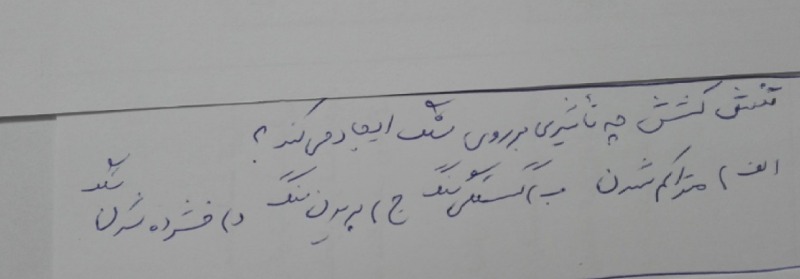 تنش کششی چه تأثیری بر روی سنگ ایجاد می کند؟
الف) متراکم شدن ب) گسستگی سنگ ج) بریدن سنگ د) فشرده شدن سنگ